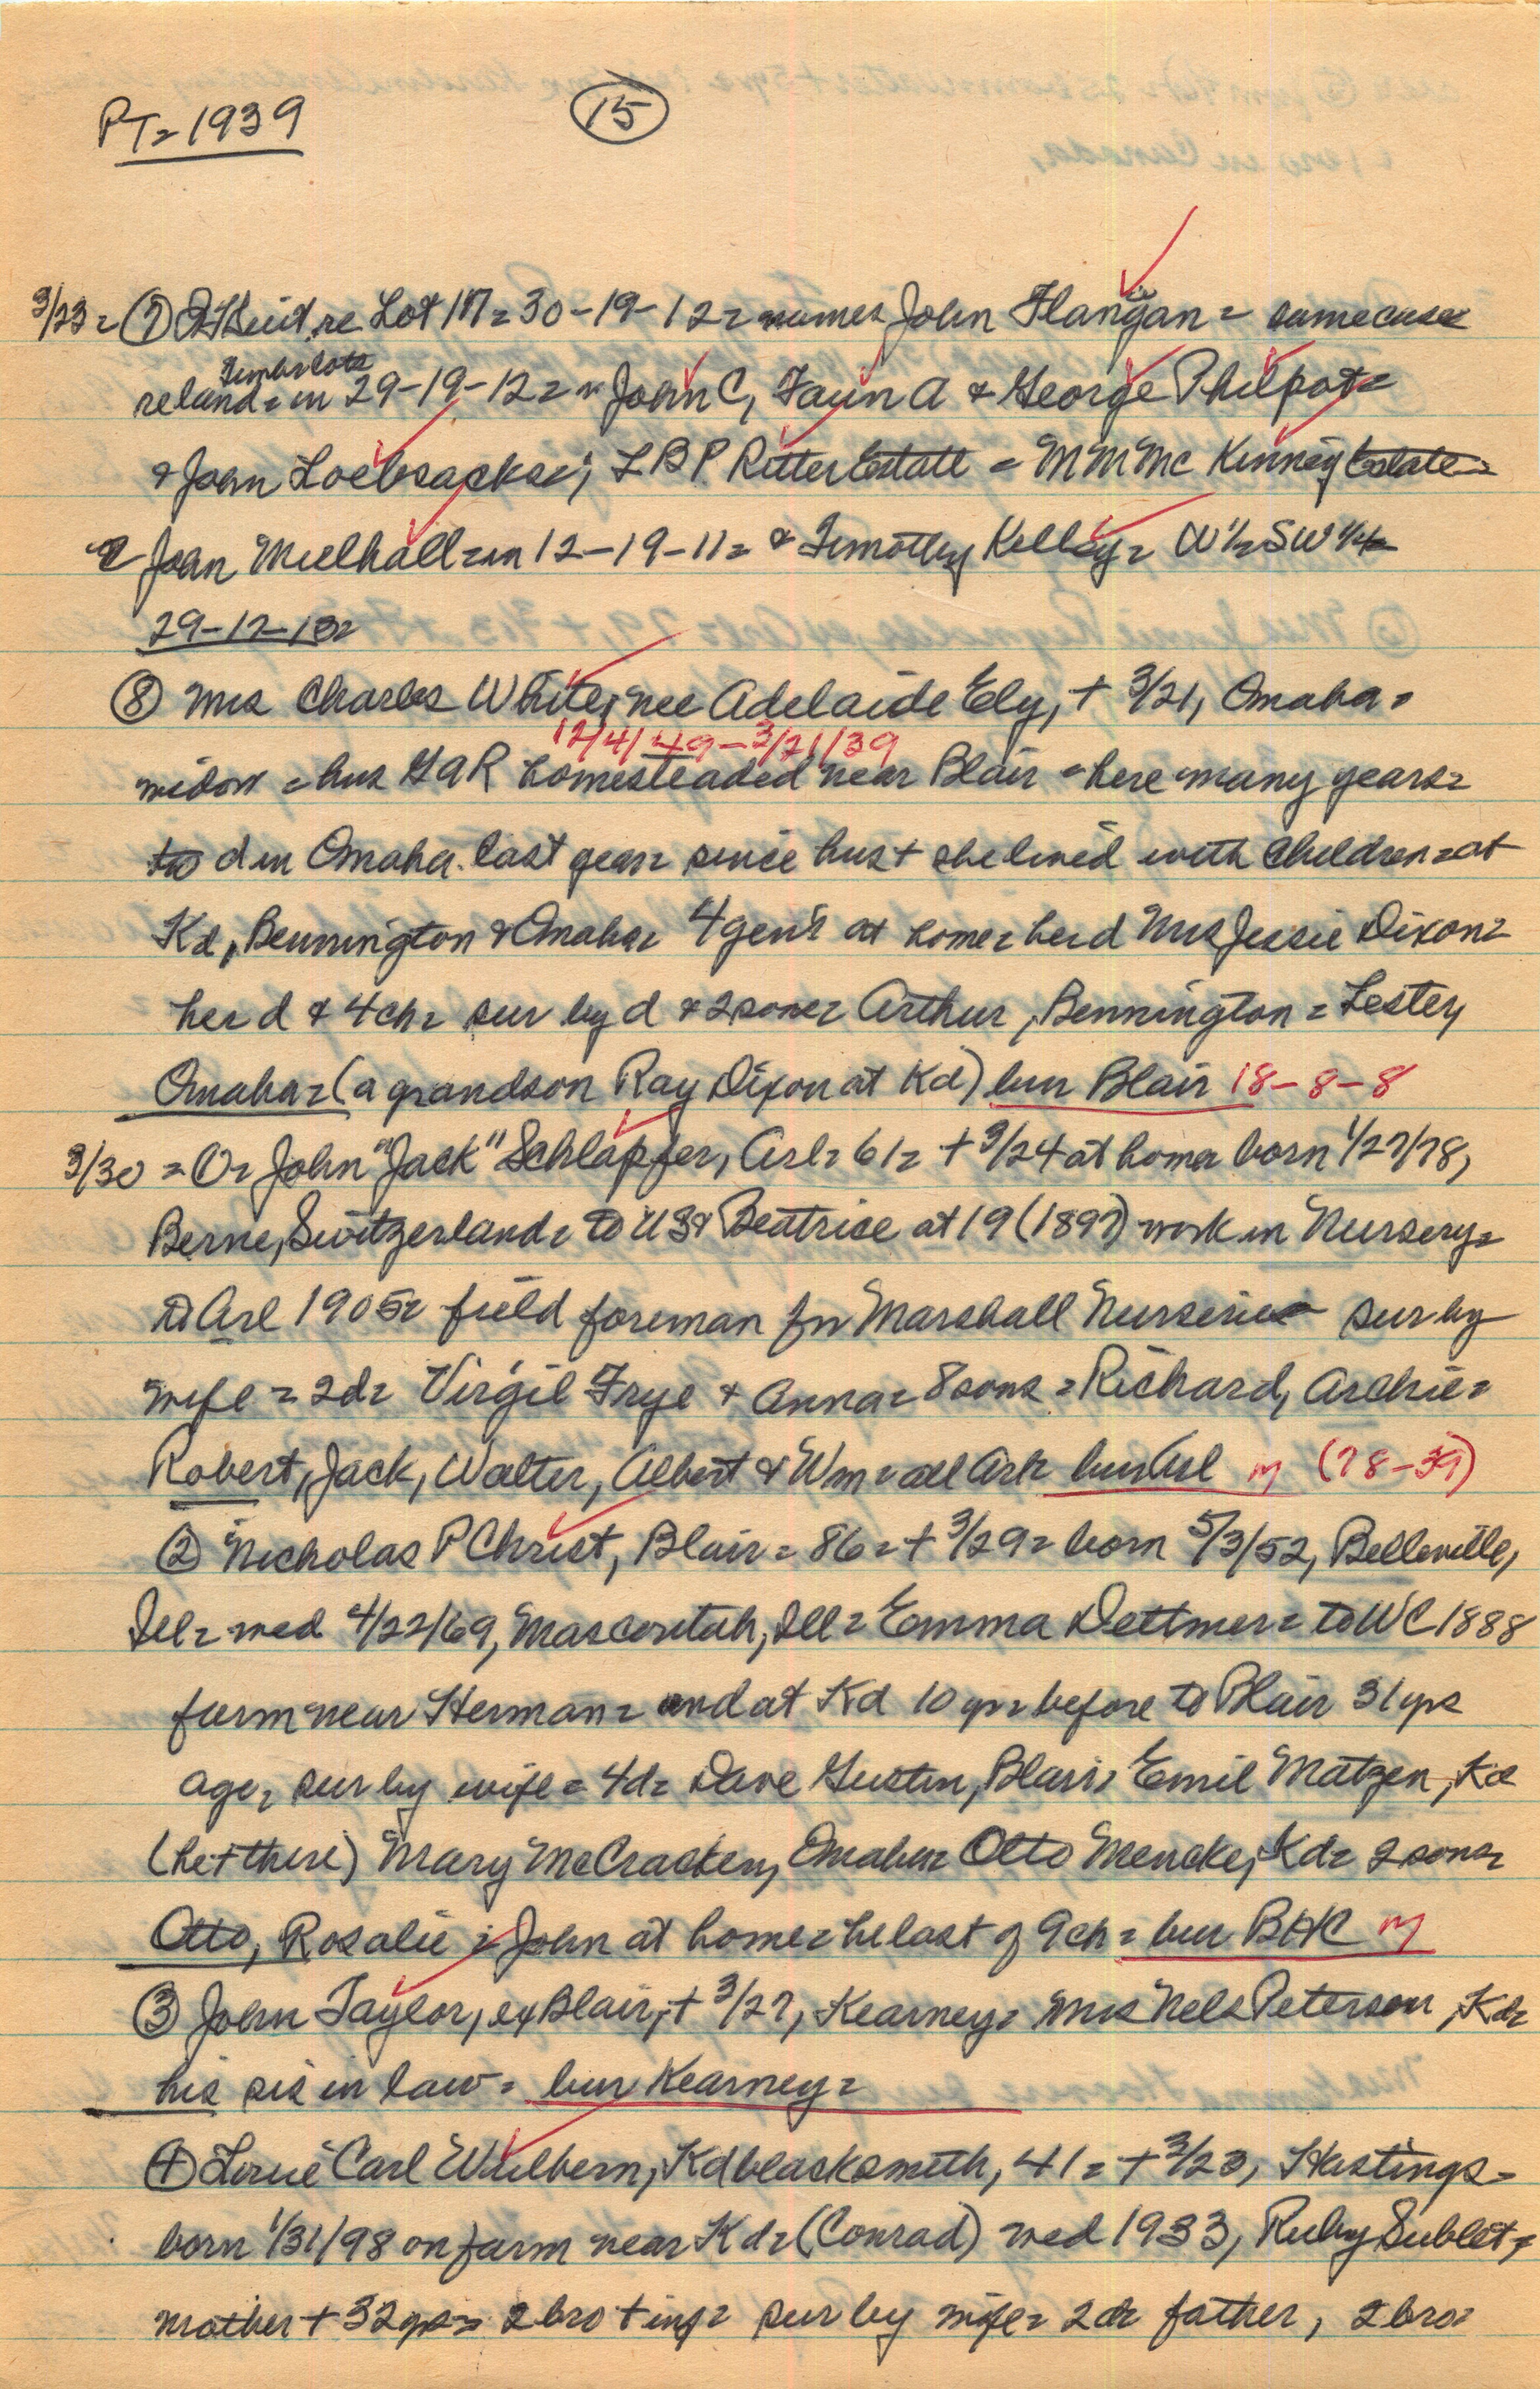 PT = 1939
15
3/23 = ⑦ QT suit re Lot 17 = 30-19-12 = names John Flanigan = same case
Timberlots
re land = in 29-19-12 = John C, Fawn A & George Philpot =
& John Loebsack =; L B P. Ritter Estate = M M McKinney Estate =
& John Mulhall = in 12-19-11 = & Timothy Kelley = W ½ SW ¼ =
29-17-13 =
⑧ Mrs Charles White, nee Adelaide Ely, + 3/21, Omaha =
12/4/49 - 3/21/39
widow = hus GAR homesteaded near Blair = here many years =
to d in Omaha last year = since hus + she lived with children = at
Kd, Bennington & Omaha = 4 gen's at home = her d Mrs Jessie Dixon =
her d & 4 ch = sur by d & 2 sons = Arthur, Bennington = Lester,
Omaha = (a grandson Ray Dixon at Kd) bur Blair 18-8-8
3/30 = ① = John "Jack" Schlapfer, Arl = 61 = + 3/24 at home born 1/27/78,
Berne, Switzerland = to US & Beatrice at 19 (1897) work in Nursery =
to Arl 1905 = field foreman for Marshall Nurseries sur by
wife = 2d = Virgil Frye & Anna = 8 sons = Richard, Archie =
Robert, Jack, Walter, Albert & Wm = all Arl = bur Arl m (78-39)
② Nicholas P Christ, Blair = 86 = + 3/29 = born 5/3/52, Belleville,
Ill = med 4/22/69, Mascoutah, Ill = Emma Dettmer = to WC 1888
farm near Herman = and at Kd 10 yr = before to Blair 31 yrs
ago, sur by wife = 4d = Dave Gustin, Blair, Emil Matzen, Kd
(he + there) Mary McCracken, Omaha = Otto Mencke, Kd = 2 sons =
Otto, Rosalie = John at home = he last of 9 ch = bur BHC m
③ John Taylor, ex Blair, + 3/27, Kearney = Mrs Nels Peterson, Kd =
his sis in law = bur Kearney =
④ Louie Carl Wulbern, Kd blacksmith, 41 = + 3/23, Hastings =
born 1/31/98 on farm near Kd = (Conrad) med 1933, Ruby Sublet,
mother + 32 yrs = 2 bro + inf = sur by wife = 2d = father, 2 bro =